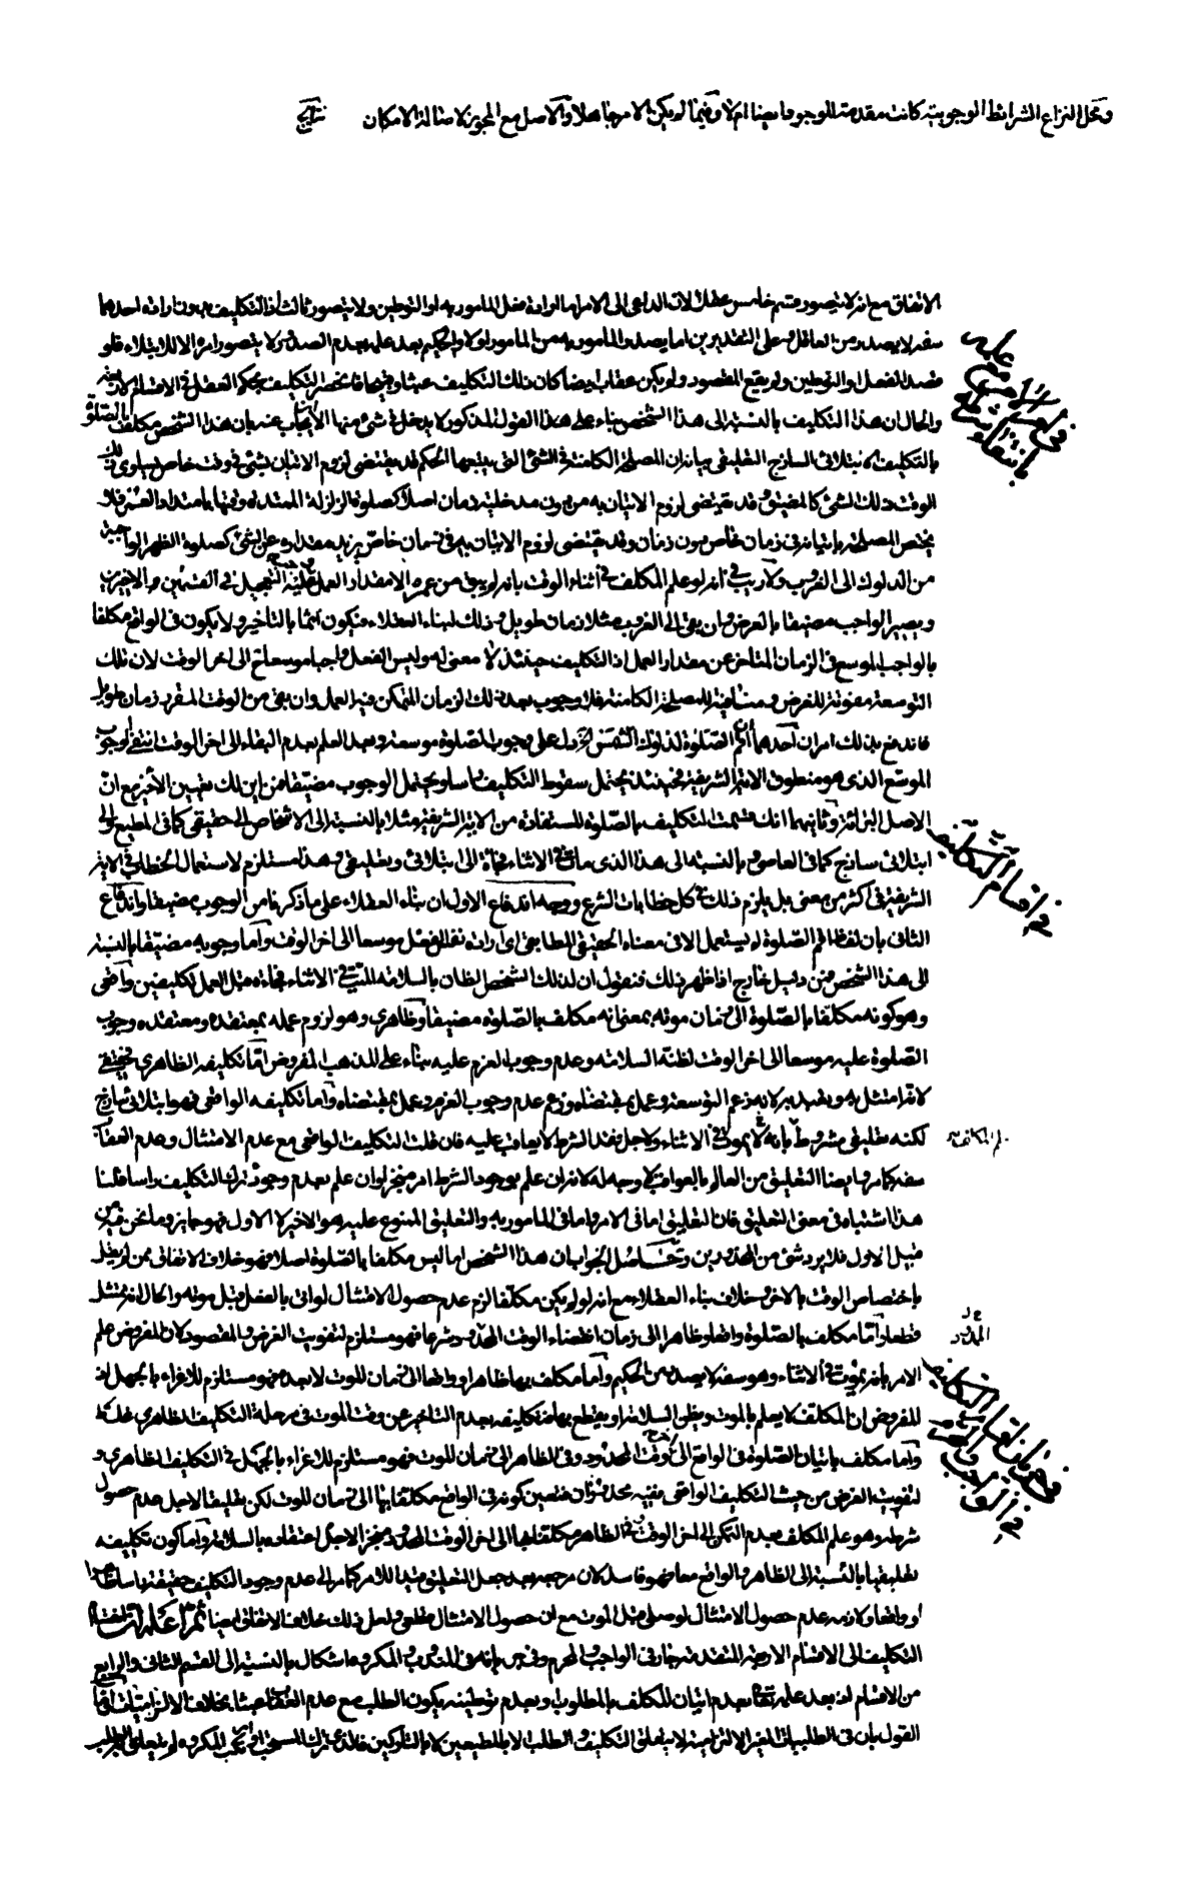 ومحل النزاع الشرائط الوجوبية كانت مقدمة للوجود ايضا ام لا وفيما لم يكن الامر جاهلا والاصل مع المجوز لاصالة الامكان نتايج
الاتفاق مع انه لا يتصور قسم خامس عقلا لان الداعى الى الامر اما ارادة فعل المامور به او التوطين ولا يتصور ثالث اذ التكليف بدون ارادة احدهما
سفه لا يصدر من العاقل وعلى التقديرين اما يصدر المامور به من المامور او لا والحكيم بعد علمه بعدم الصدور لا يتصور امره الا للابتلاء فلو
قصد الفعل او التوطين ولم يقع المقصود ولم يكن عقاب ايضا كان ذلك التكليف عبثا وقبيحا فانحصر التكليف بحكم العقل في الاقسام الاربعة
والحال ان هذا التكليف بالنسبة الى هذا الشخص بناء على هذا القول المذكور لا يدخل في شئ منها الا ان يجاب عنه بان هذا الشخص مكلف بالصلوة
بالتكليف الابتلائى الساذج التعليقى بيانه ان المصلحة الكامنة في الشئ التى يتبعها الحكم قد يقتضى لزوم الاتيان بشئ في وقت خاص يساوى ذلك
الوقت ذلك الشئ كالمضيق وقد يقتضى لزوم الاتيان به من دون مدخلية زمان اصلا كصلوة الزلزلة الممتد وقتها بامتداد العمر فلا
يختص المصلحة باتيانه في زمان خاص دون زمان وقد يقتضى لزوم الاتيان به في زمان خاص يزيد مقداره عن الشئ كصلوة الظهر الواجبة
من الدلوك الى الغروب ولا ريب في انه لو علم المكلف في اثناء الوقت بانه لم يبق من عمره الا مقدار العمل عليه التعجيل في القسمين الاخيرين
ويصير الواجب مضيقا بالعرض وان بقى الى الغروب مثلا زمان طويل وذلك لبناء العقلاء فيكون آثما بالتاخير ولا يكون في الواقع مكلفا
بالواجب الموسع في الزمان المتاخر عن مقدار العمل اذ التكليف حينئذ لا معنى له وليس الفعل واجبا موسعا الى اخر الوقت لان تلك
التوسعة مفوتة للغرض ومنافية للمصلحة الكامنة فلا وجوب بعد ذلك الزمان المتمكن فيه العمل وان بقى من الوقت المقرر زمان طويل
فاندفع بذلك امران احدهما ان اقم الصلوة لدلوك الشمس دل على وجوب الصلوة موسعة وبعد العلم بعدم البقاء الى اخر الوقت انتفى الوجوب
الموسع الذى هو منطوق الاية الشريفة فحينئذ يحتمل سقوط التكليف راسا ويحتمل الوجوب مضيقا فمن اين لك تعيين الاخير مع ان
الاصل البرائة وثانيهما انك قسمت التكليف بالصلوة المستفادة من الاية الشريفة مثلا بالنسبة الى الاشخاص الى حقيقى كما في المطيع والى
ابتلائى ساذج كما في العاصى وبالنسبة الى هذا الذى مات في الاثناء فجأة الى ابتلائى وتعليقى وهذا مستلزم لاستعمال الخطاب في الاية
الشريفة في اكثر من معنى بل يلزم ذلك في كل خطابات الشرع ووجه اندفاع الاول ان بناء العقلاء على ما ذكرنا من الوجوب مضيقا واندفاع
الثانى بان لفظ اقم الصلوة لم يستعمل الا في معناه الحقيقى المطابقى اى ارادة نفس الفعل موسعا الى اخر الوقت واما وجوبه مضيقا بالنسبة
الى هذا الشخص فمن دليل خارج اذا ظهر ذلك فنقول ان لذلك الشخص الظان بالسلامة الميت في الاثناء فجاءة قبل العمل تكليفين واقعى
وهو كونه مكلفا بالصلوة الى زمان موته بمعنى انه مكلف بالصلوة مضيقا وظاهرى وهو لزوم عمله بمعتقده ومعتقده وجوب
الصلوة عليه موسعا الى اخر الوقت لظنه السلامة وعدم وجوب العزم عليه بناء على المذهب المفروض اما تكليفه الظاهرى فحقيقى
لانه امتثل به وتعبد به لانه زعم التوسعة وعمل بمقتضاه وزعم عدم وجوب العزم وعمل بمقتضاه واما تكليفه الواقعى فهو ابتلائى ساذج
لكنه تعليقى مشروط بانه لا يموت في الاثناء ولاجل فقد الشرط لا يعاقب عليه فان قلت التكليف الواقعى مع عدم الامتثال وعدم العقاب
سفه كما مر وايضا التعليق من العالم بالعواقب لا وجه له لانه ان علم بوجود الشرط امر منجزا وان علم بعدم وجوده ترك التكليف راسا قلنا
هذا اشتباه في معنى التعليق فان التعليق اما في الامر واما في المامور به والتعليق الممنوع عليه هو الاخير لا الاول فهو جايز وما نحن فيه من
قبيل الاول فلا يرد شئ من المحذورين وحاصل الجواب ان هذا الشخص اما ليس مكلفا بالصلوة اصلا فهو خلاف الاتفاق ممن لم يقل
باختصاص الوقت بالاخر وخلاف بناء العقلاء مع انه لو لم يكن مكلفا لزم عدم حصول الامتثال لو اتى بالفعل قبل موته والحال انه يمتثل
قطعا واما مكلف بالصلوة واقعا وظاهرا الى زمان انقضاء الوقت المحدود شرعا فهو مستلزم لتفويت الغرض والمقصود لان المفروض علم
الامر بانه يموت في الاثناء وهو سفه لا يصدر من الحكيم واما مكلف بها ظاهرا وواقعا الى زمان الموت لا بعده فهو مستلزم للاغراء بالجهل اذ
المفروض ان المكلف لا يعلم بالموت ويظن السلامة او يقطع بها فتكليفه بعدم التاخير عن وقت الموت في مرحلة التكليف الظاهرى غلط
واما مكلف باتيان الصلوة في الواقع الى اخر الوقت المحدود وفى الظاهر الى زمان الموت فهو مستلزم للاغراء بالجهل في التكليف الظاهرى و
لتفويت الغرض من حيث التكليف الواقعى ففيه محذوران فتعين كونه في الواقع مكلفا بها الى زمان الموت لكن تعليقا لاجل عدم حصول
شرطه وهو علم المكلف بعدم التمكن الى اخر الوقت وفى الظاهر مكلفا بها الى اخر الوقت المحدود منجزا لاجل اعتقاده بالسلامة واما كون تكليفه
تعليقيا بالنسبة الى الظاهر والواقع معا فهو فاسد لان مرجعه بعد جعل التعليق قيدا للامر كما مر الى عدم وجود التكليف حقيقة راسا ظاهرا
او واقعا ولازمه عدم حصول الامتثال لو صلى قبل الموت مع ان حصول الامتثال قطعى ولعل ذلك خلاف الاتفاق ايضا ثم اعلم ان انقسام
التكليف الى الاقسام الاربعة المتقدمة جار في الواجب والمحرم وفى جريانه في المندوب والمكروه اشكال بالنسبة الى القسم الثانى والرابع
من الاقسام اذ بعد علمه تعالى بعدم اتيان المكلف بالمطلوب وبعدم توطينه يكون الطلب مع عدم العقاب عبثا بخلاف الالزاميات اما
القول بان في الطلبيات الغير الالزامية لا يتعلق التكليف والطلب الا بالمطيعين لا بالتاركين فالذى ترك المستحب او ارتكب المكروه لم يتعلق به الطلب
في اقسام التكليف